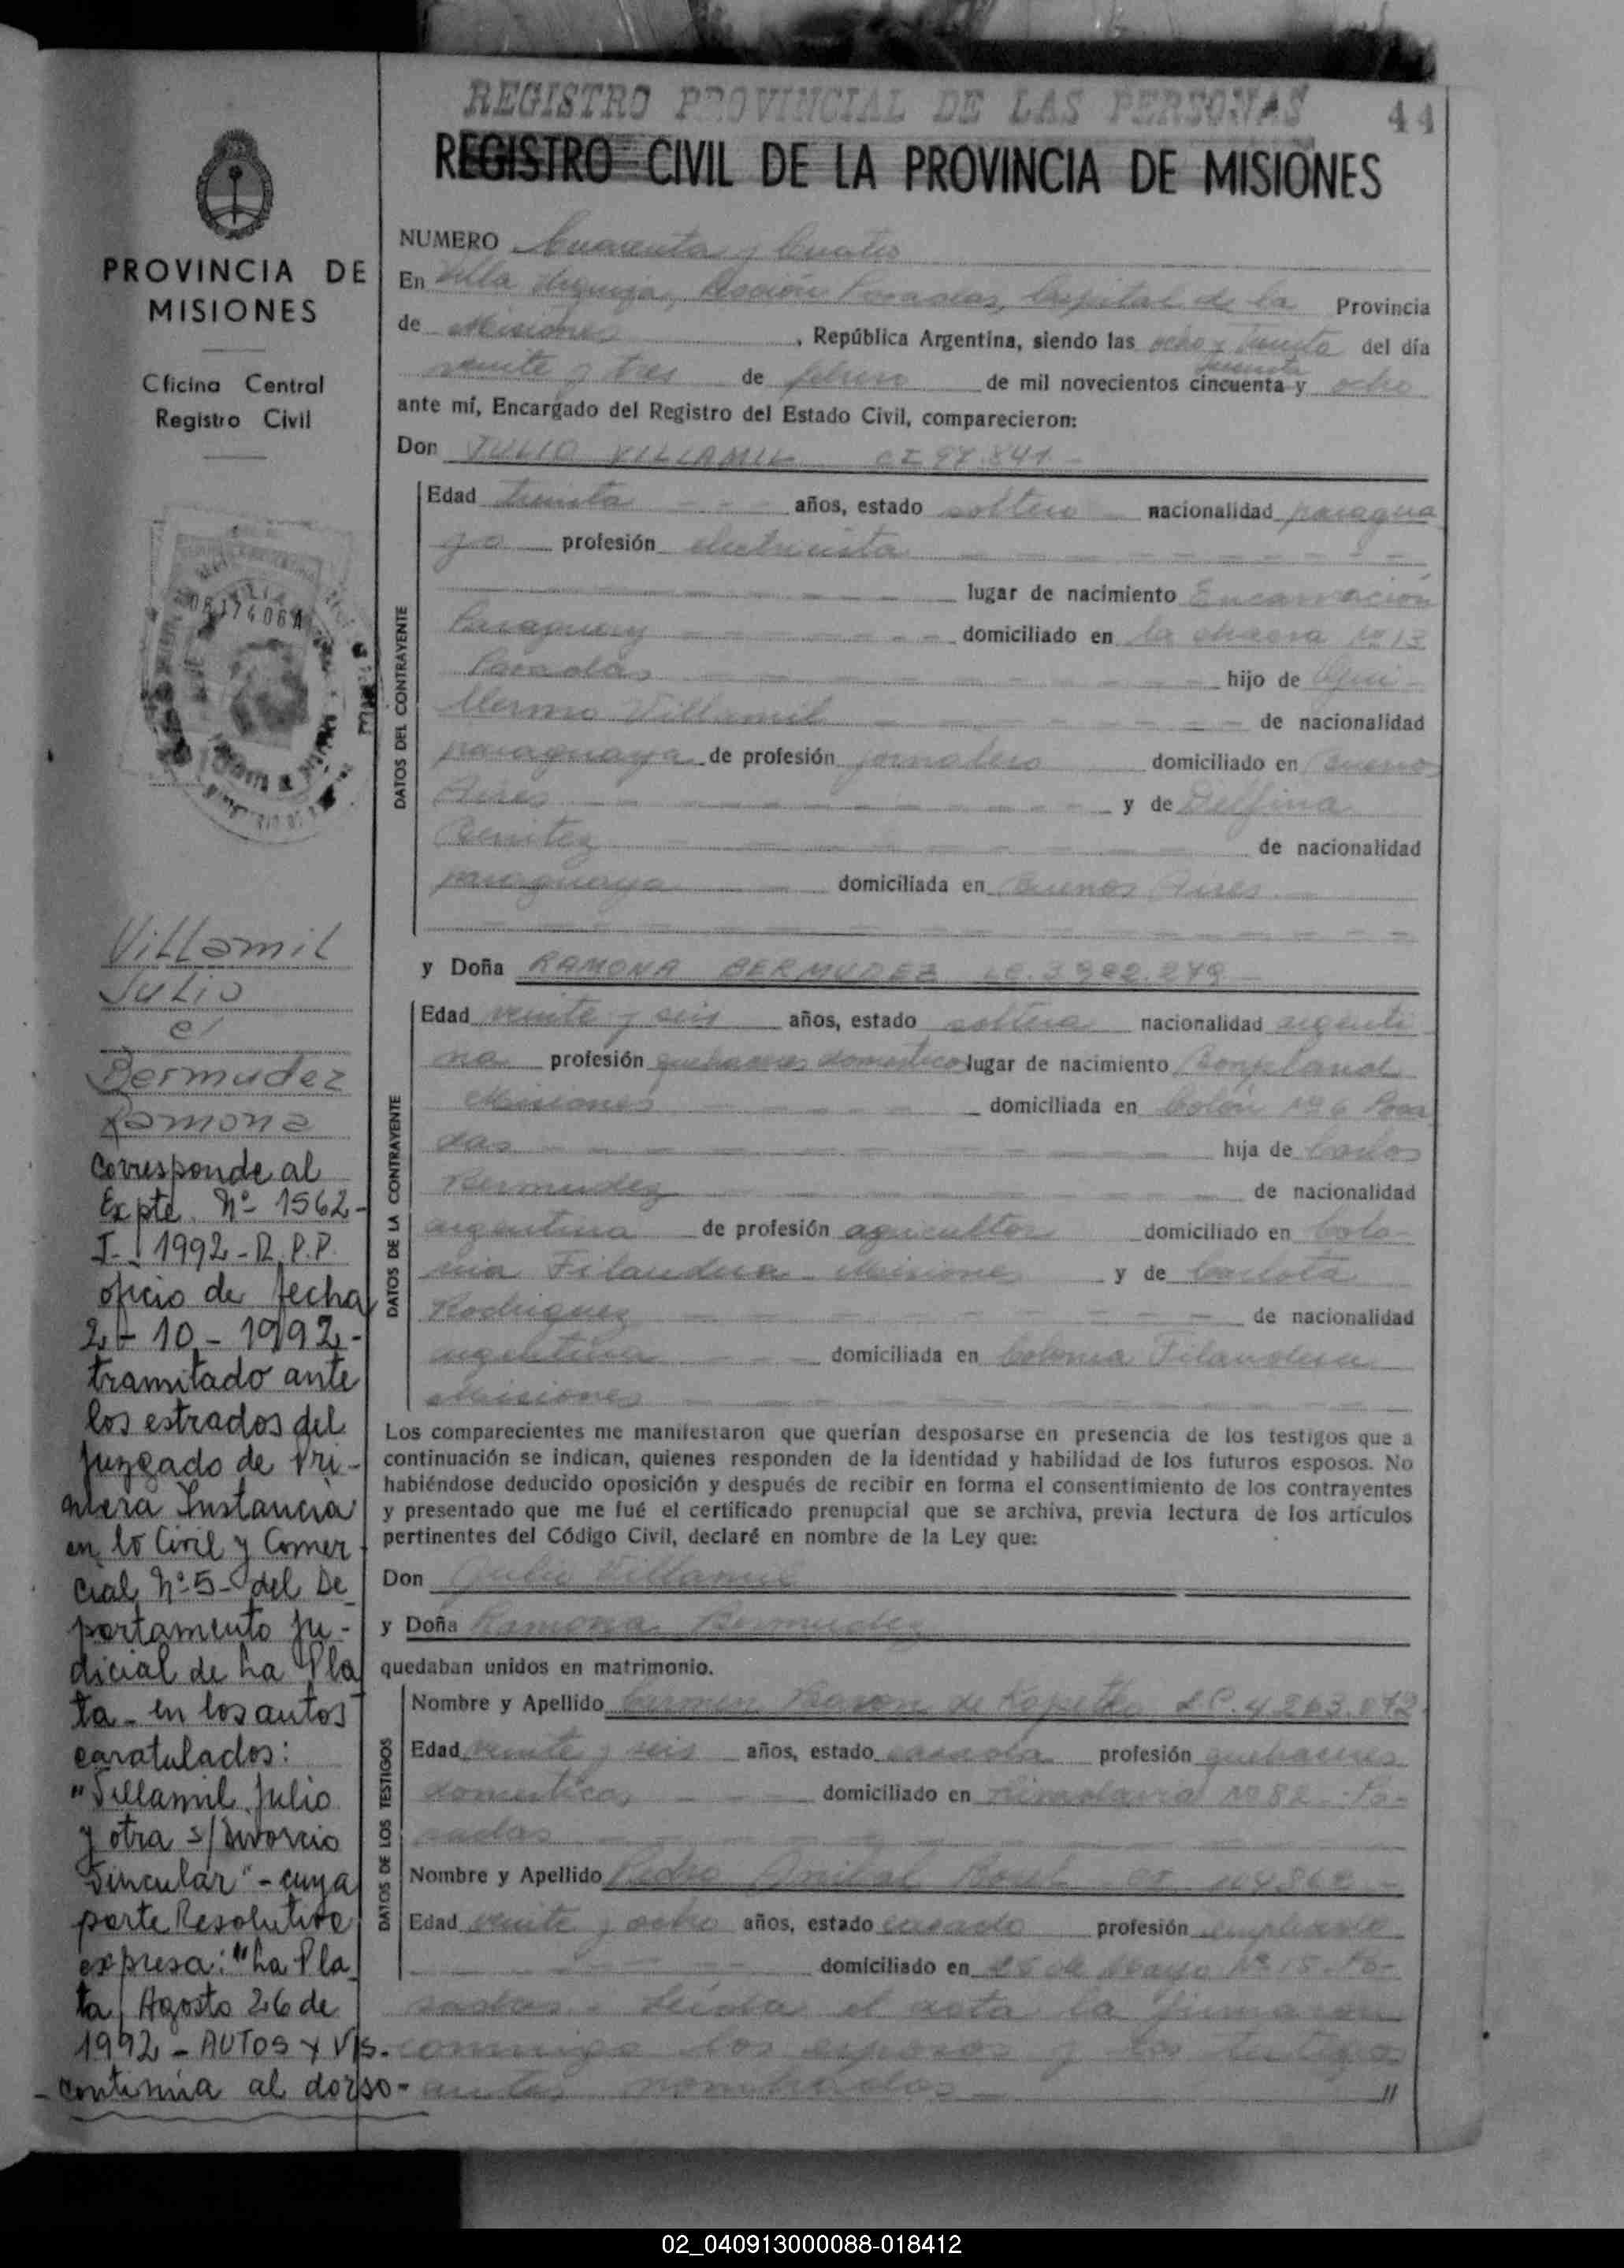 REGISTRO PROVINCIAL DE LAS PERSONAS 44
REGISTRO CIVIL DE LA PROVINCIA DE MISIONES
PROVINCIA DE
MISIONES
Oficina Central
Registro Civil
Villamil
Julio
c/
Bermudez
Ramona
Corresponde al
Expte. Nº 1562-
I-1992-R.P.P.
oficio de fecha
2-10-1992-
tramitado ante
los estrados del
Juzgado de Pri-
mera Instancia
en lo Civil y Comer
cial Nº 5- del De
partamento Ju-
dicial de La Pla
ta- en los autos
caratulados:
"Villamil Julio
y otra s/Divorcio
Vincular"- cuya
parte Resolutiva
expresa: "La Pla
ta, Agosto 26 de
1992- AUTOS Y VIS-
-continúa al dorso-
NUMERO Cuarenta y Cuatro
En Villa Urquiza, Sección Posadas, Capital de la Provincia
de Misiones, República Argentina, siendo las ocho y treinta del día
veinte y tres de febrero de mil novecientos cincuenta y ocho
ante mí, Encargado del Registro del Estado Civil, comparecieron:
Don JULIO VILLAMIL CI 97.841-
DATOS DEL CONTRAYENTE
Edad treinta años, estado soltero nacionalidad paragua
yo profesión electricista
lugar de nacimiento Encarnación
Paraguay domiciliado en la chacra Nº 13
Posadas hijo de Gui-
llermo Villamil de nacionalidad
paraguaya de profesión jornalero domiciliado en Buenos
Aires y de Delfina
Benitez de nacionalidad
paraguaya domiciliada en Buenos Aires
y Doña RAMONA BERMUDEZ LC. 3.902.279
DATOS DE LA CONTRAYENTE
Edad veinte y seis años, estado soltera nacionalidad argenti
na profesión quehaceres domestico lugar de nacimiento Bonpland
Misiones domiciliada en Colón Nº 6 Posa
das hija de Carlos
Bermudez de nacionalidad
argentina de profesión agricultor domiciliado en Colo-
nia Filandesa Misiones y de Carlota
Rodriguez de nacionalidad
argentina domiciliada en Colonia Filandesa
Misiones
Los comparecientes me manifestaron que querían desposarse en presencia de los testigos que a
continuación se indican, quienes responden de la identidad y habilidad de los futuros esposos. No
habiéndose deducido oposición y después de recibir en forma el consentimiento de los contrayentes
y presentado que me fué el certificado prenupcial que se archiva, previa lectura de los artículos
pertinentes del Código Civil, declaré en nombre de la Ley que:
Don Julio Villamil
y Doña Ramona Bermudez
quedaban unidos en matrimonio.
DATOS DE LOS TESTIGOS
Nombre y Apellido Carmen de LC. 4.263.
Edad veinte y seis años, estado casada profesión quehaceres
domesticos domiciliado en Rivadavia Nº 82 Po-
sadas
Nombre y Apellido Pedro Anibal CI
Edad veinte y ocho años, estado casado profesión empleado
domiciliado en 25 de Mayo Nº 15 Po-
sadas. Leída el acta la firmaron
conmigo los esposos y los testigos
antes nombrados-
02_040913000088-018412